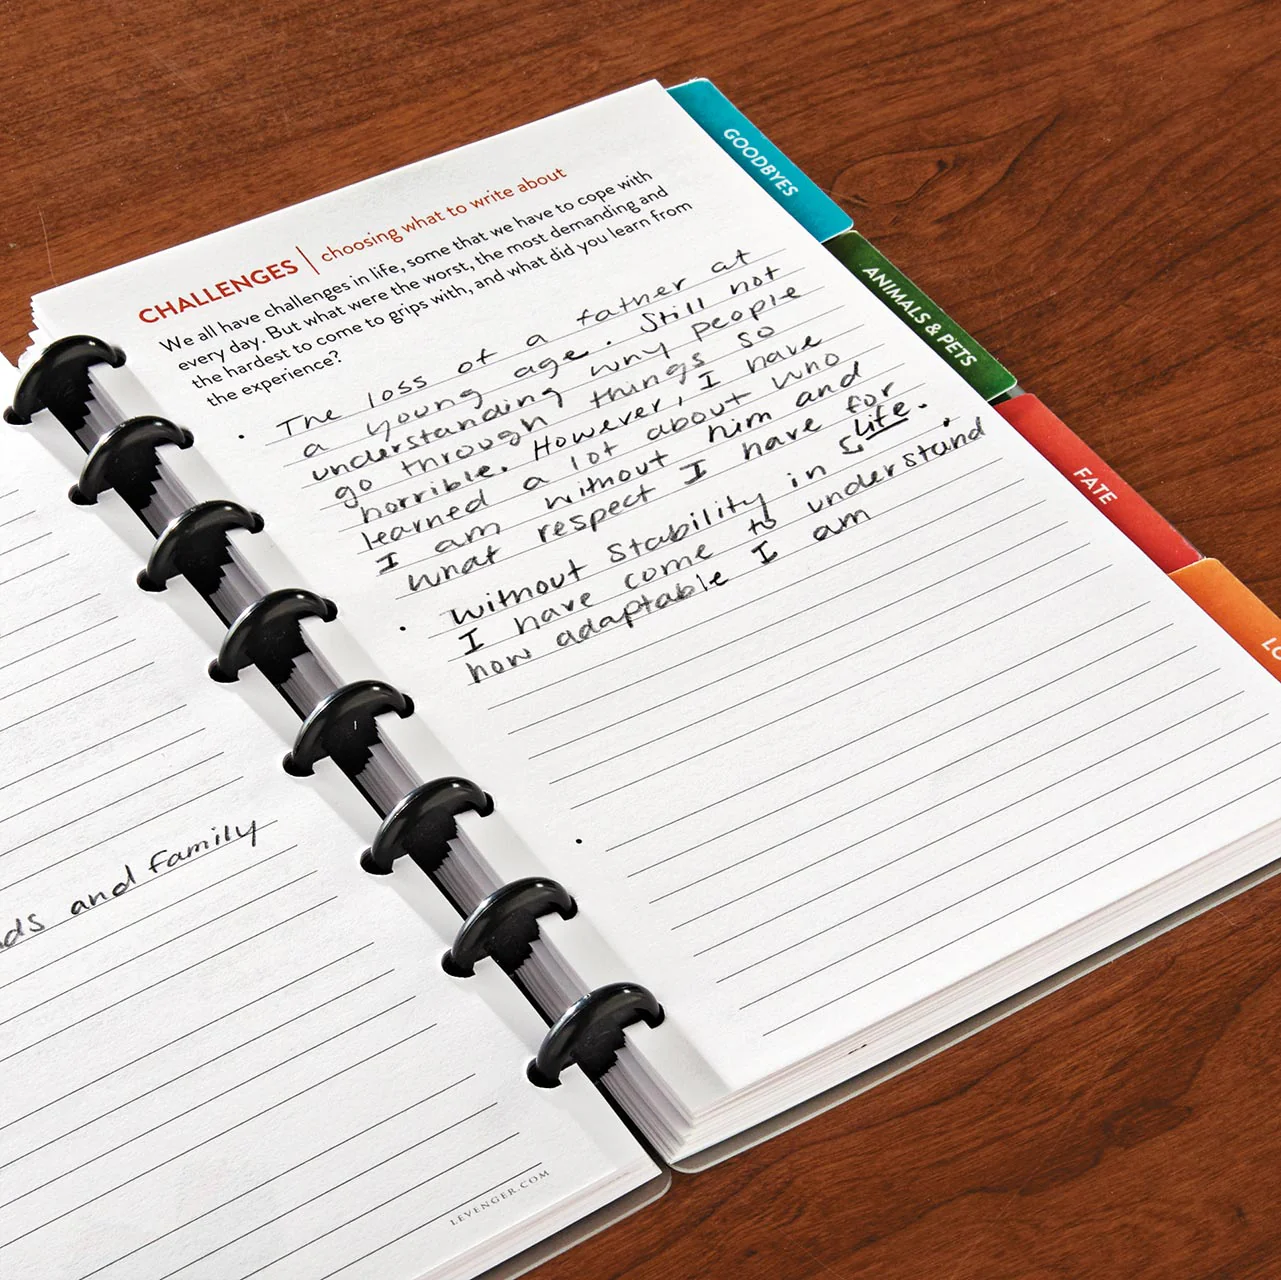 CHALLENGES | choosing what to write about
We all have challenges in life, some that we have to cope with
every day. But what were the worst, the most demanding and
the hardest to come to grips with, and what did you learn from
the experience?
• The loss of a father at
a young age. Still not
understanding why people
go through things so
horrible. However, I have
learned a lot about who
I am without him and
what respect I have for
life.
• Without stability in
I have come to understand
how adaptable I am
GOODBYES
ANIMALS & PETS
FATE
and family
LEVENGER.COM